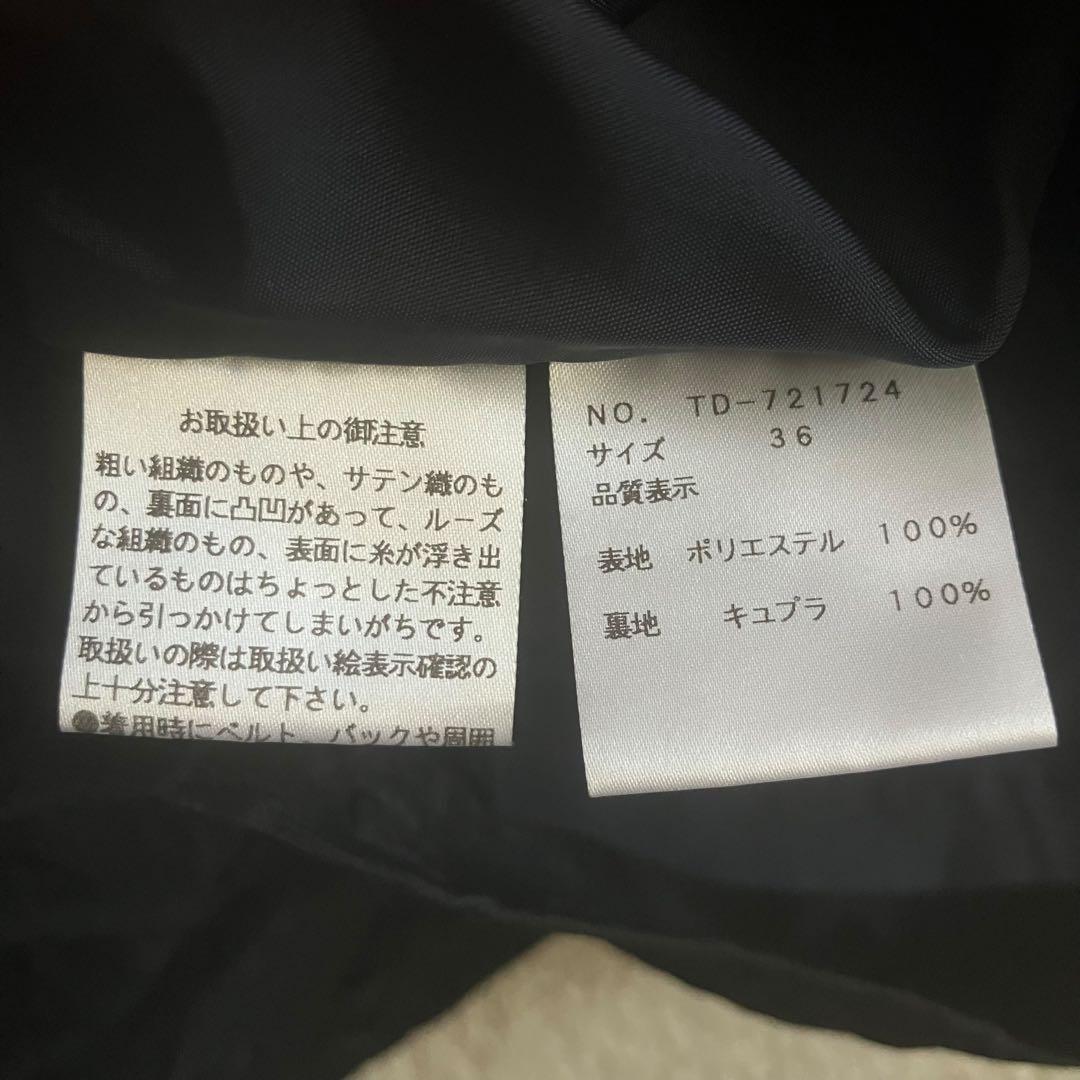 お取扱い上の御注意
粗い組織のものや、サテン織のも
の、裏面に凸凹があって、ルーズ
な組織のもの、表面に糸が浮き出
ているものはちょっとした不注意
から引っかけてしまいがちです。
取扱いの際は取扱い絵表示確認の
上十分注意して下さい。
●着用時にベルト、バックや周囲
NO. TD-721724
サイズ 36
品質表示
表地 ポリエステル 100%
裏地 キュプラ 100%